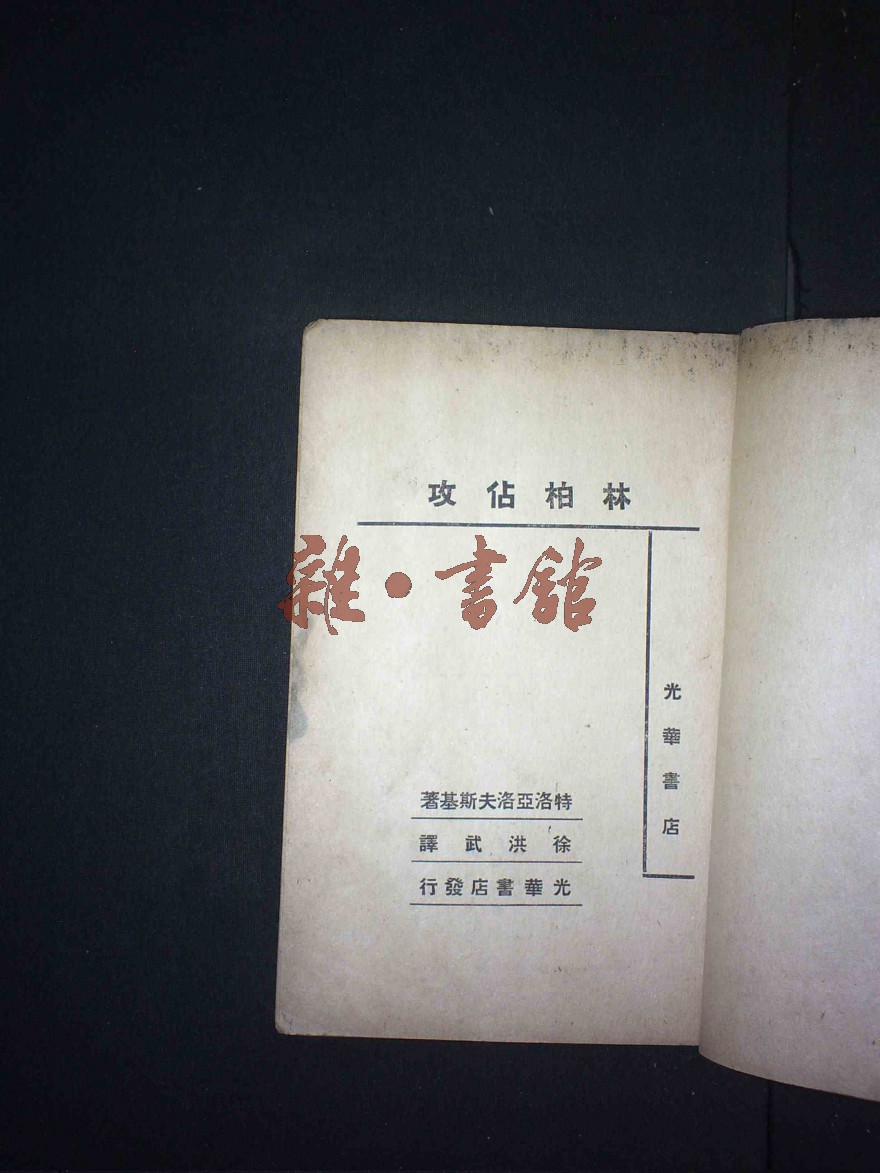 攻佔柏林
光華書店
特洛亞洛夫斯基著
徐洪武譯
光華書店發行
雜·書館